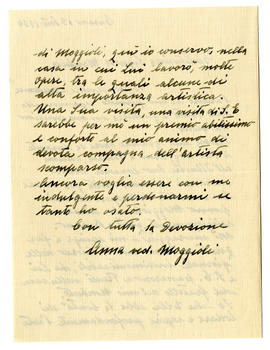 di Moggioli, quì io conservo, nella
casa in cui Lui lavorò, molte
opere, tra le quali alcune di
alta importanza artistica.
Una Sua visita, una visita di S. E
sarebbe per me un premio
e conforto al mio animo di
devota compagna dell'artista
scomparso.
Ancora voglia essere con me
indulgente e perdonarmi se
tanto ho osato.
Con tutta la Devozione
Anna ved. Moggioli